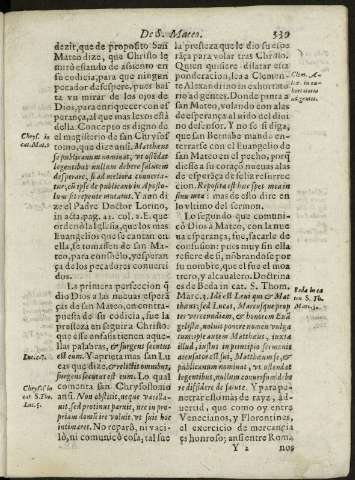 De S. Mateo. 539
dezir, que de proposito San
Mateo dize, que Christo le
miró estando de assiento en
su codicia, para que ningun
pecador desespere, pues bas
ta vn mirar de los ojos de
Dios, para enriquecer con es
perança, al que mas lexos está
della. Concepto es digno de
el magisterio de san Chrysos
tomo, que dize ansi, Matthæus
se publicanum nominat, vt ostẽdat
legentibus nullum debere salutem
desperare, si ad meliora conuerta-
tur, cũ ipse de publicano in Aposto-
lum sit repente mutatus. Y ansi di
ze el Padre Doctor Lorino,
in acta. pag. 21. col. 2. E que
ordenó la Iglesia, que los mas
Euangelios que se cantan en
ella, se tomassen de san Ma-
teo, para consuelo, y esperan
ça de los pecadores conuerti
dos.
La primera perfeccion q̃
dio Dios a las nueuas esperã
ças de san Mateo, en contra-
puesta de su codicia, fue la
presteza en seguir a Christo:
que esse enfasis tienen aque-
llas palabras, & surgens secutus
est eum. Y aprieta mas san Lu
cas que dize, & relictis omnibus,
surgens secutus est eum. Lo qual
comenta san Chrysostomo
ansi. Non obstitit, neque vacilla-
uit, sed protinus paruit, nec in pro-
priam domũ ire voluit, vt suis hæc
intimaret. No reparò, ni vaci-
lò, ni comunicò cosa, tal fue
Chrys. in
cat. Mat. 9
Luc. c. 5.
Chrys. in
cat. S. Tho.
Luc. 5.
la presteza que le dio su espe
rãça para volar tras Christo.
Quien quisiere dilatar esta
ponderacion, lea a Clemen-
te Alexandrino in exhortatio
ne ad gentes. Donde pinta a
san Mateo, volando con alas
de esperança al nido del diui
no defensor. Y no se si diga,
que san Bernabe mandò en-
terrarse con el Euangelio de
san Mateo en el pecho, porq̃
diesse a su coraçõ nueuas alas
de esperãça de feliz resurrec
cion. Reposita est hæc spes mea in
sinu meo: mas de esto dire en
lo vltimo del sermon.
Lo segundo que comuni-
cò Dios a Mateo, con la nue
ua esperança, fue, sacarle de
confusion: pues muy sin ella
refiere de si, nõbrandose por
su nombre, que el fue el moa
trero, y alcaualero. Doctrina
es de Beda in cat. S. Thom.
Marc. 2. Idẽ est Leui qui & Mat
thæus, sed Lucas, Marcusque prop
ter verecundiam, & honorem Euã
gelistæ, noluit ponere nomen vulga
tum: ipse autem Matthæus, iuxta
illud, iustus in principio sermonis
accusator est sui, Matthæum se, &
publicanum nominat, vt ostẽdat
legentibus, nullum conuersum debe
re diffidere de salute. Y para pe-
netrar esto mas de rayz, ad-
uertid, que como oy entre
Venecianos, y Florentines,
el exercicio de mercangia
es honroso; ansi entre Roma
Clem. A-
lex. in ex-
hortatione
ad gentes.
Beda in ca
ten. S. Th.
Marc. 2.
Y 2 nos